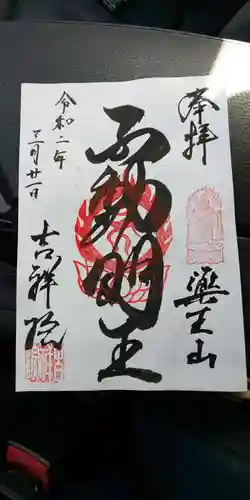 奉拝
薬王山
不動明王
令和二年
三月廿一日
吉祥院